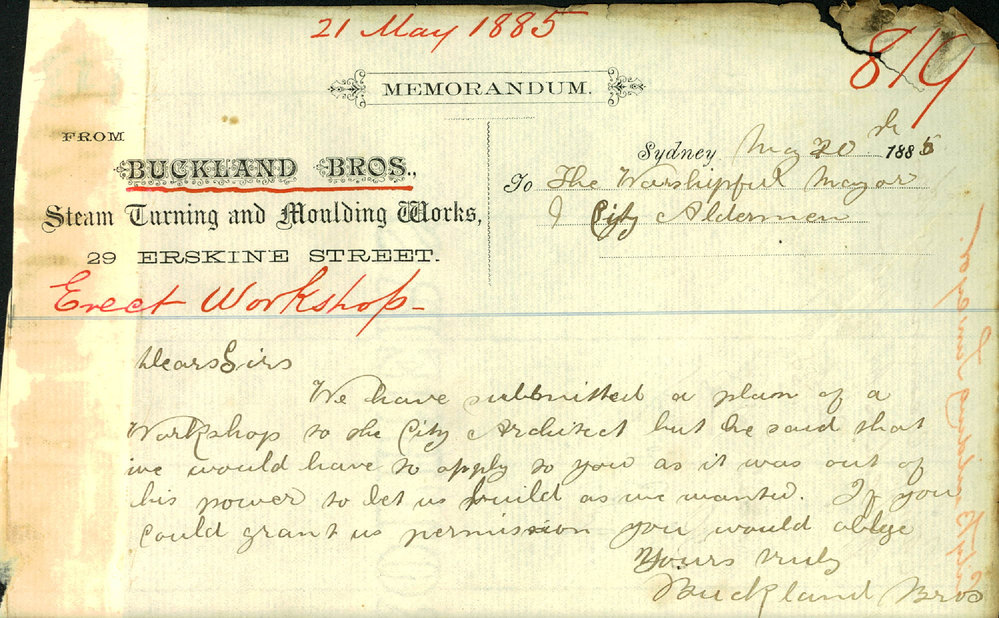 21 May 1885
819
MEMORANDUM.
FROM
BUCKLAND BROS.,
Steam Turning and Moulding Works,
29 ERSKINE STREET.
Sydney May 20th 1885
To The Worshipful Mayor
& City Aldermen
Erect Workshop-
Dears Sirs
We have submitted a plan of a
Workshop to the City Architect but he said that
we would have to apply to you as it was out of
his power to let us build as we wanted. If you
could grant us permission you would oblge
Yours truly
Buckland Bros